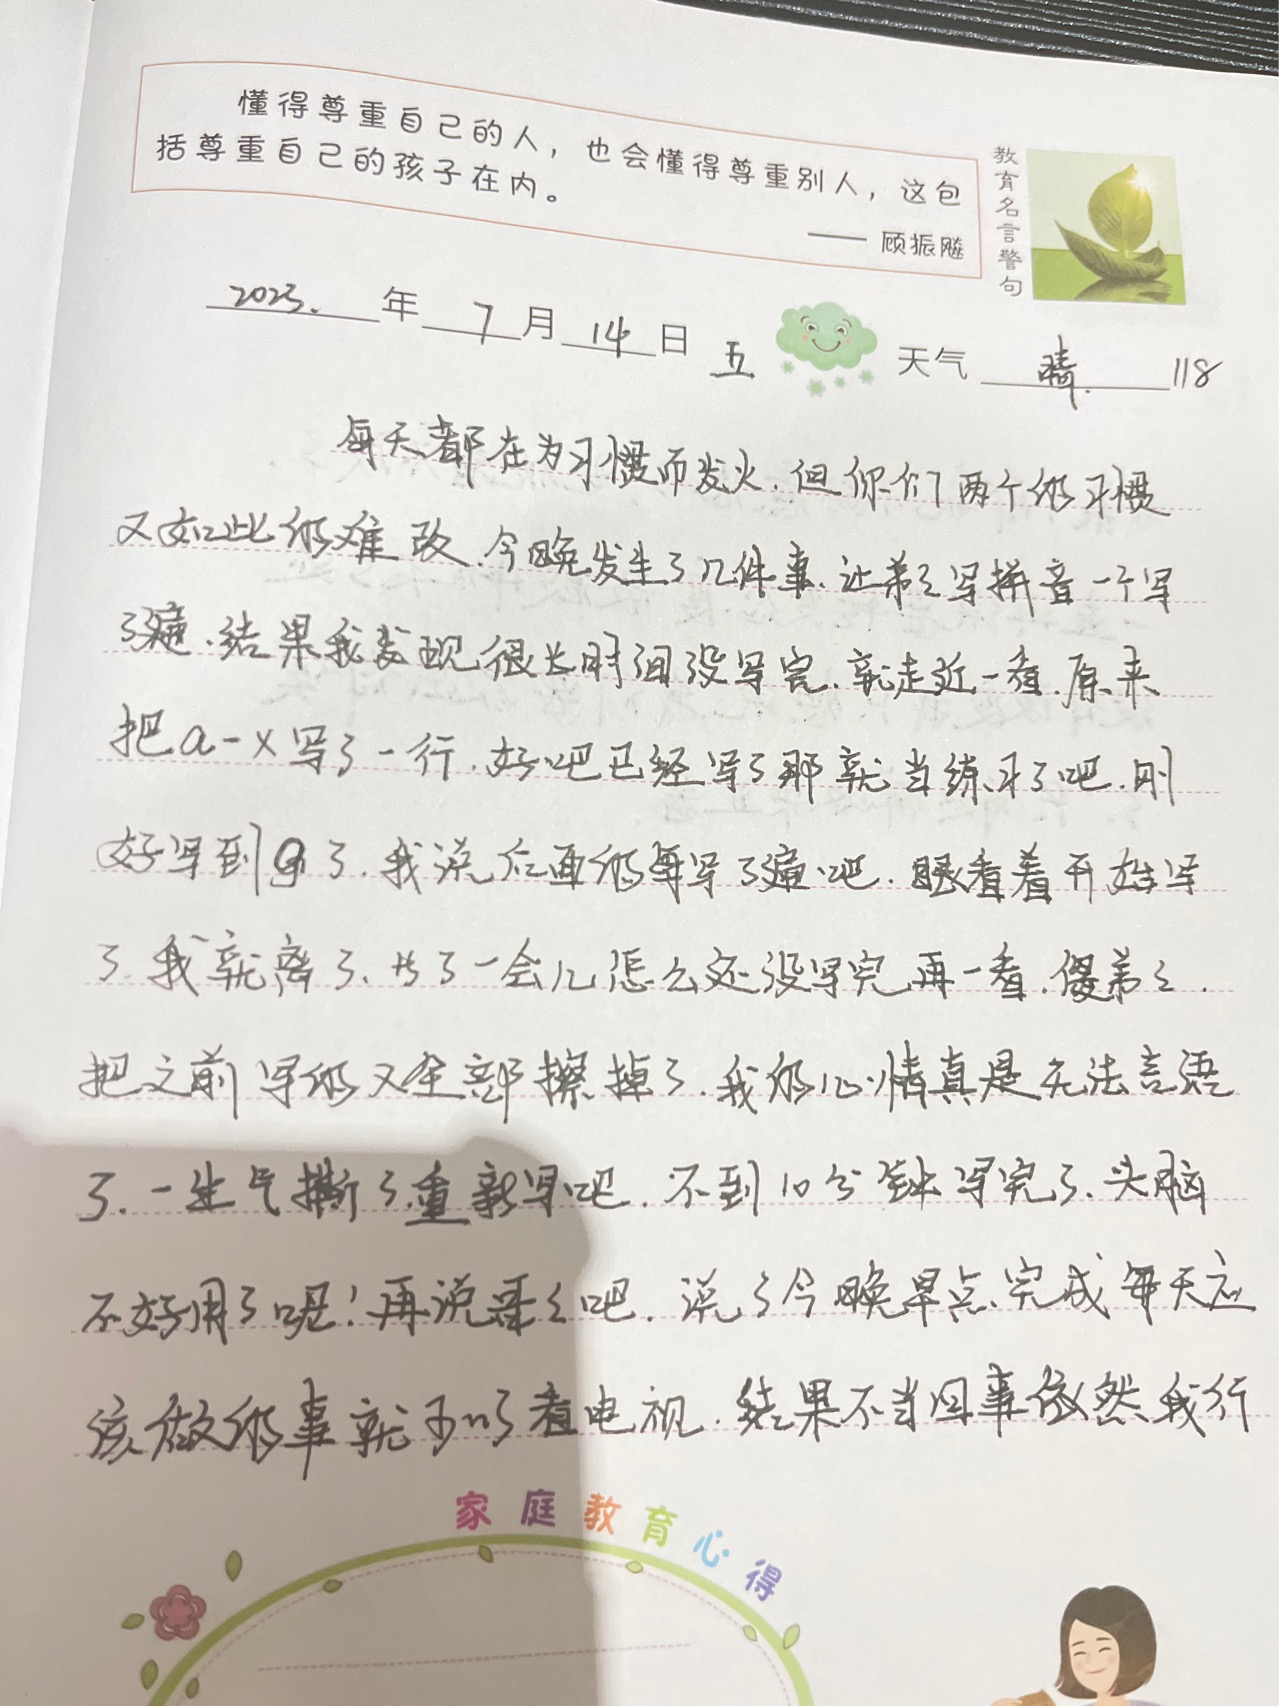 懂得尊重自己的人，也会懂得尊重别人，这包
括尊重自己的孩子在内。
—— 顾振飚
教育名言警句
2023. 年 7 月 14 日 五 天气 晴. 118
每天都在为习惯而发火.但你们两个的习惯
又如此的难改.今晚发生了几件事.让弟弟写拼音一个写
3遍.结果我发现很长时间没写完.就走近一看.原来
把a-x写了一行.好吧已经写了那就当练习了吧.刚
好写到g了.我说后面的每写3遍吧.眼看着开始写
了.我就离了.过了一会儿怎么还没写完再一看.傻弟弟.
把之前写的又全部擦掉了.我的心情真是无法言语
了.一生气撕了.重新写吧.不到10分钟写完了.头脑
不好用了呢!再说哥哥吧.说了今晚早点完成每天应
该做的事就可以了看电视.结果不当回事依然我行
家庭教育心得